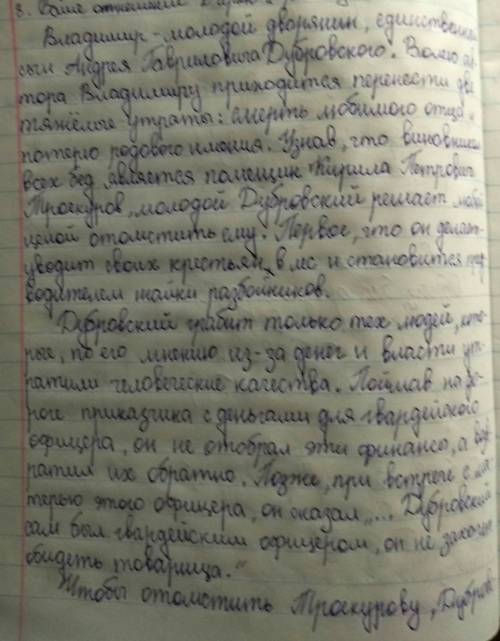 3. Ваше отношение к
Владимир - молодой дворянин, единственный
сын Андрея Гавриловича Дубровского. Волею ав-
тора Владимиру приходится перенести две
тяжёлые утраты: смерть любимого отца и
потерю родового имения. Узнав, что виновником
всех бед является помещик Кирилла Петрович
Троекуров, молодой Дубровский решает любой
ценой отомстить ему. Первое, что он делает-
уводит своих крестьян в лес и становится пред
водителем шайки разбойников.
Дубровский грабит только тех людей, кото-
рые, по его мнению из-за денег и власти ут-
ратили человеческие качества. Поймав на до-
роге приказчика с деньгами для гвардейского
офицера, он не отобрал эти финансы, а воз
ратил их обратно. Позже, при встрече с ма
терью этого офицера, он сказал „... Дубровский
сам был гвардейским офицером, он не захочет
обидеть товарища."
Чтобы отомстить Троекурову, Дубров